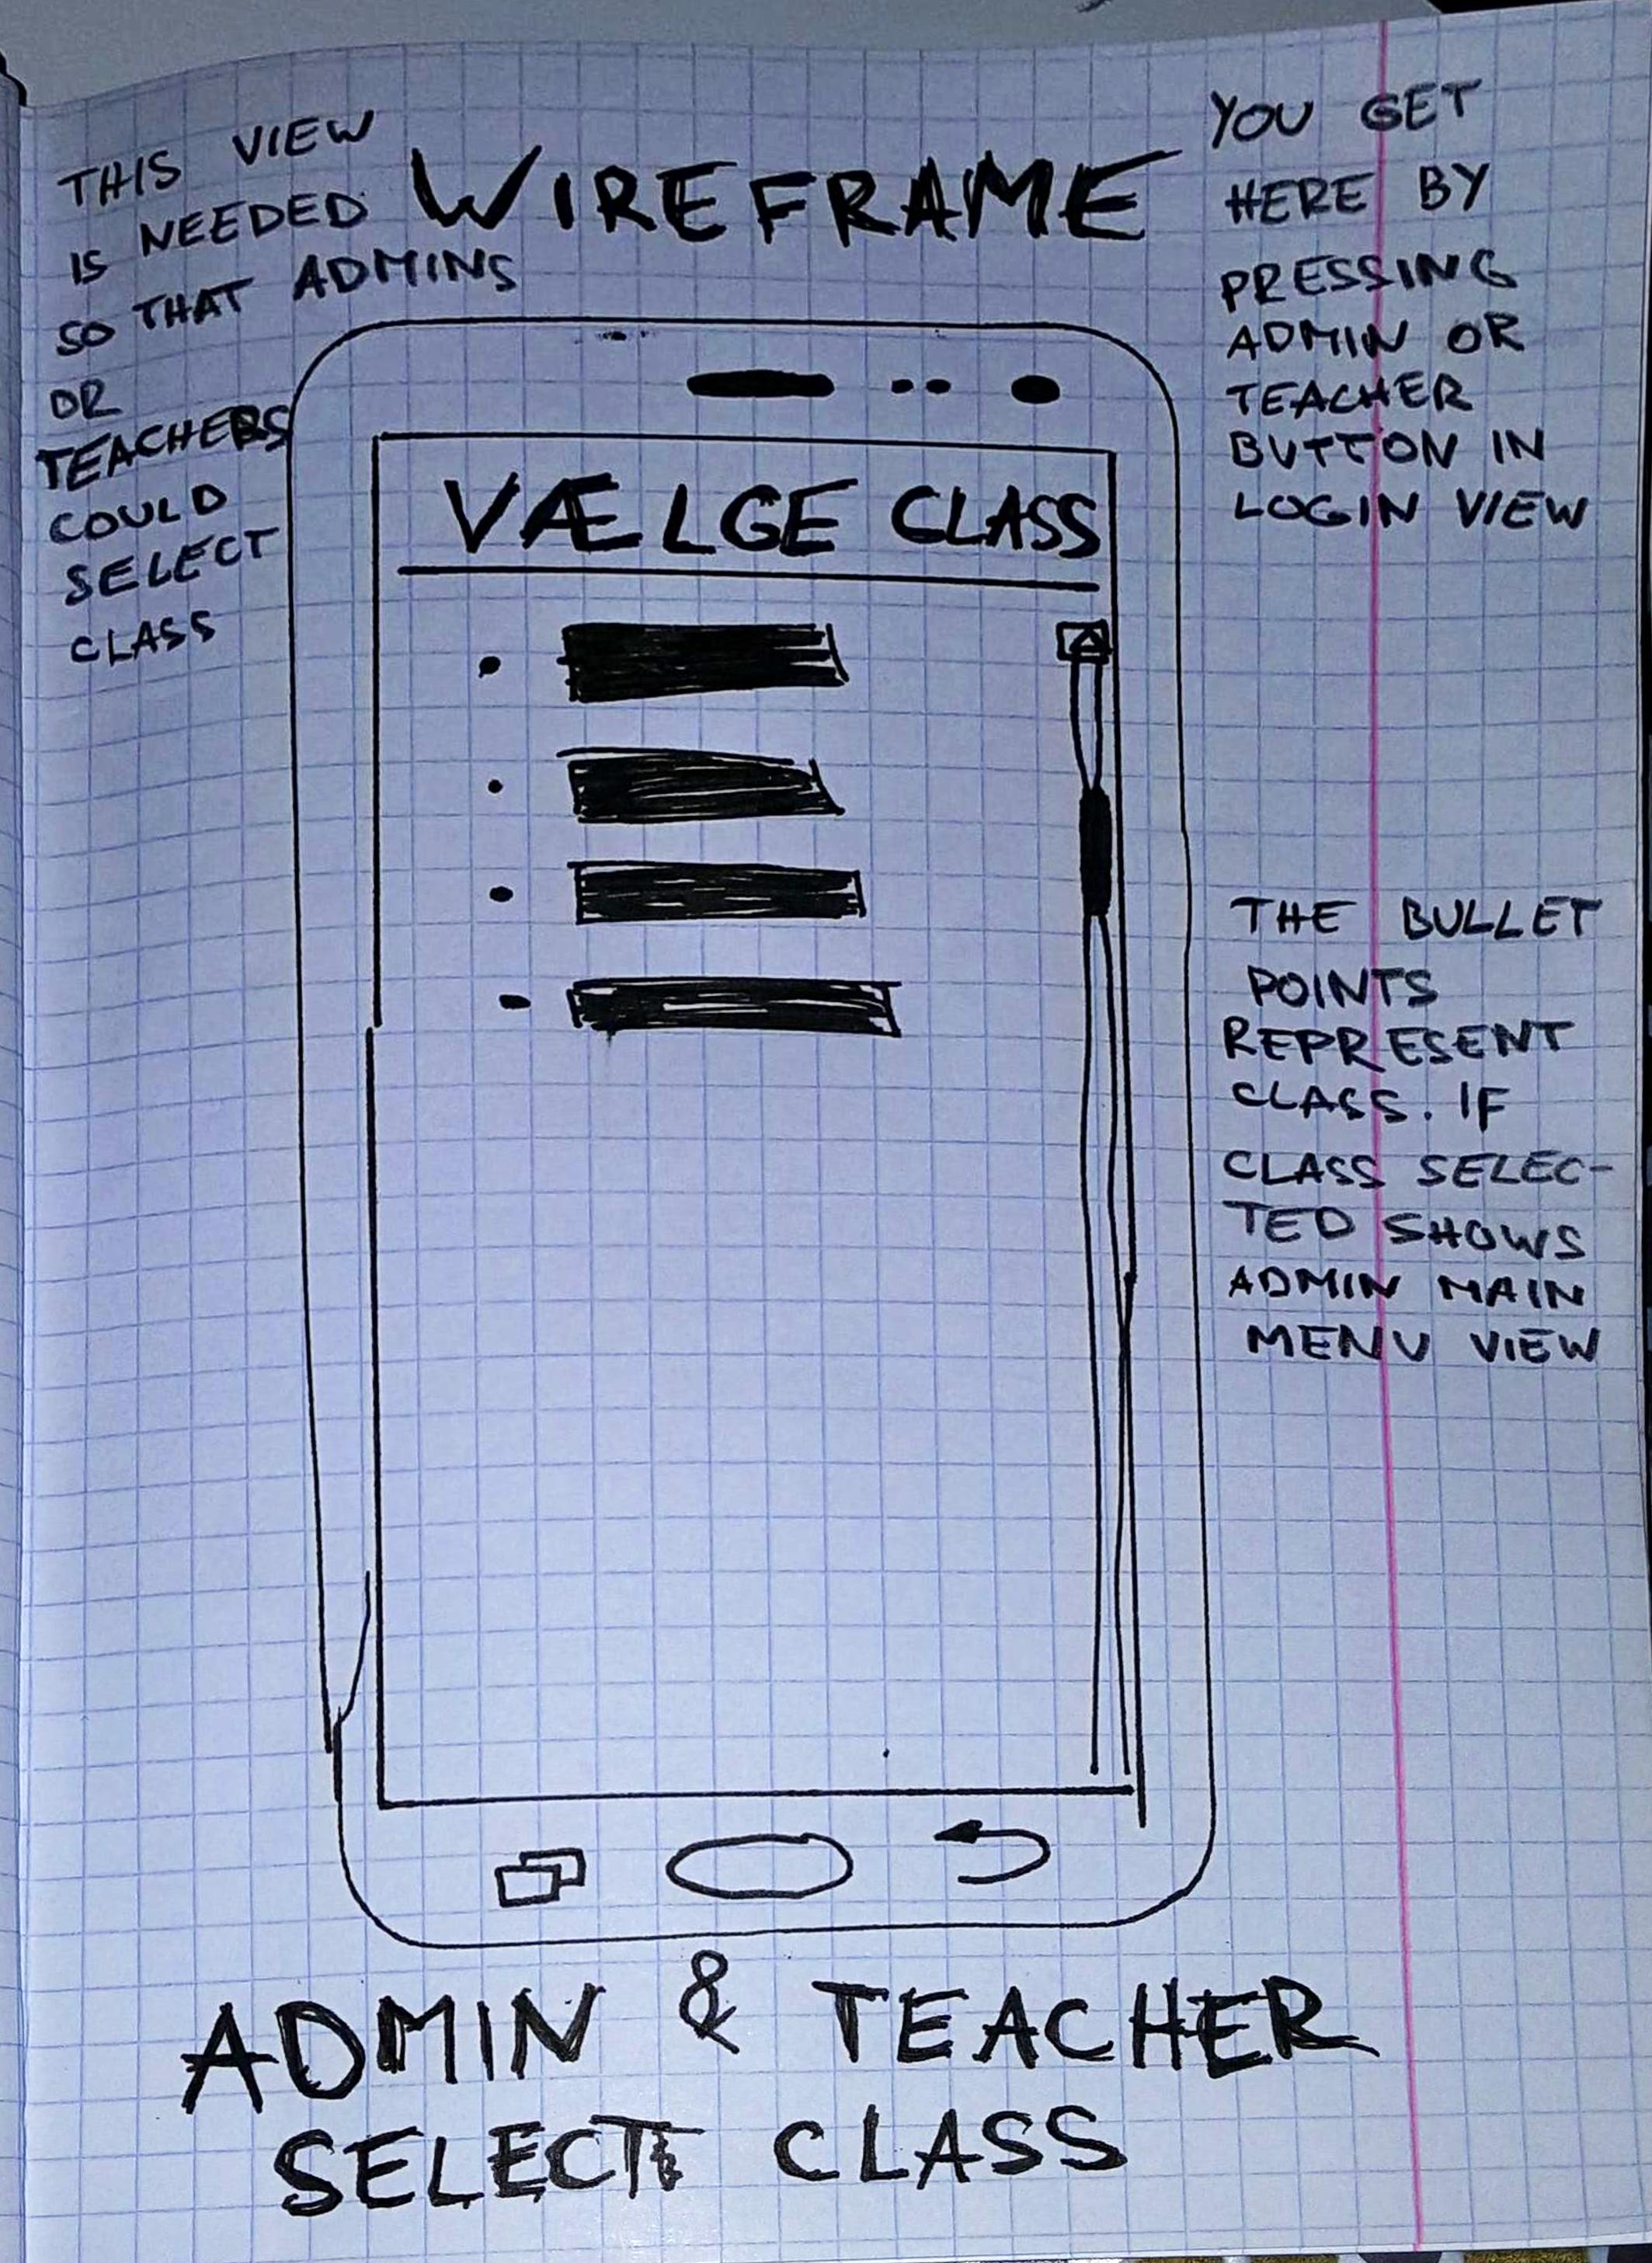 THIS VIEW
IS NEEDED
SO THAT ADMINS
OR
TEACHERS
COULD
SELECT
CLASS
WIREFRAME
YOU GET
HERE BY
PRESSING
ADMIN OR
TEACHER
BUTTON IN
LOGIN VIEW
VÆLGE CLASS
THE BULLET
POINTS
REPRESENT
CLASS. IF
CLASS SELEC-
TED SHOWS
ADMIN MAIN
MENU VIEW
ADMIN & TEACHER
SELECT CLASS